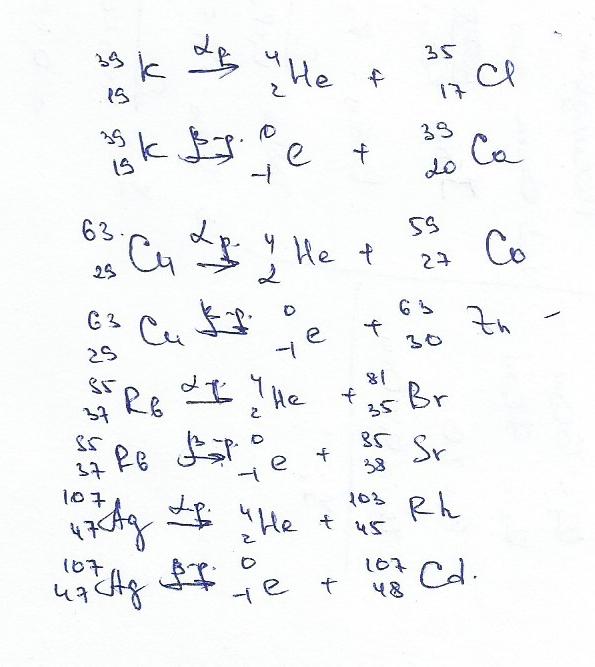 ³⁹₁₉K —α р.→ ⁴₂He + ³⁵₁₇Cl
³⁹₁₉K —β-р.→ ⁰₋₁e + ³⁹₂₀Ca
⁶³₂₉Cu —α р.→ ⁴₂He + ⁵⁹₂₇Co
⁶³₂₉Cu —β-р.→ ⁰₋₁e + ⁶³₃₀Zn
⁸⁵₃₇Rb —α р.→ ⁴₂He + ⁸¹₃₅Br
⁸⁵₃₇Rb —β-р.→ ⁰₋₁e + ⁸⁵₃₈Sr
¹⁰⁷₄₇Ag —α р.→ ⁴₂He + ¹⁰³₄₅Rh
¹⁰⁷₄₇Ag —β-р.→ ⁰₋₁e + ¹⁰⁷₄₈Cd.